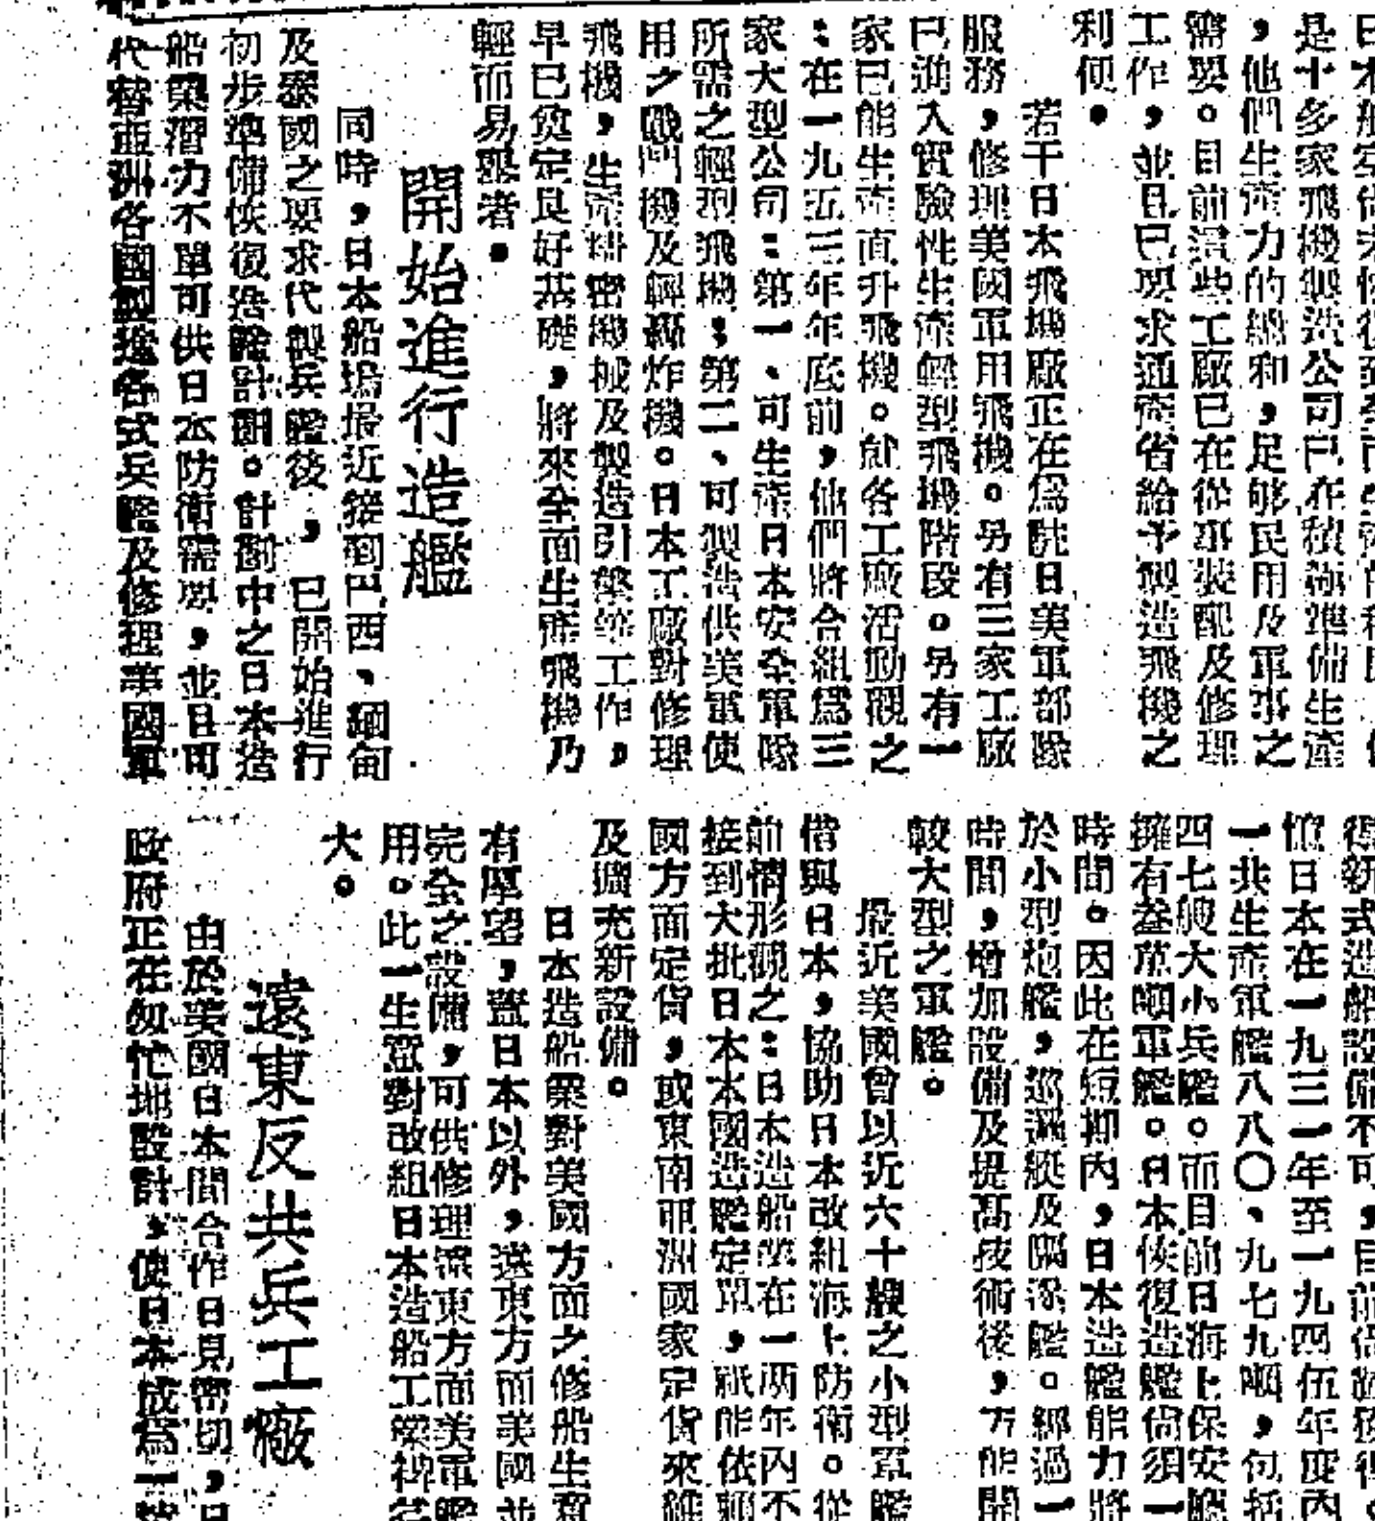 是十多家飛機製造公司已在積極準備生產
，他們生產力的總和，足够民用及軍事之
需要。目前這些工廠已在從事裝配及修理
工作，並且已要求通產省給予製造飛機之
利便。
若干日本飛機廠正在爲駐日美軍部隊
服務，修理美國軍用飛機。另有三家工廠
已進入實驗性生產輕型飛機階段。另有一
家已能生產直升飛機。就各工廠活動觀之
：在一九五三年年底前，他們將合組爲三
家大型公司：第一、可生產日本安全軍隊
所需之輕型飛機；第二、可製造供美軍使
用之戰鬥機及輕轟炸機。日本工廠對修理
飛機，生產精密機械及製造引擎等工作，
早已奠定良好基礎，將來全面生產飛機乃
輕而易舉者。
開始進行造艦
同時，日本船塢最近接到巴西、緬甸
及泰國之要求代製兵艦後，已開始進行
初步準備恢復造艦計劃。計劃中之日本造
船業潛力不單可供日本防衛需要，並且可
代替亞洲各國製造各式兵艦及修理美國軍
得新式造船設備不可，目前
日本在一九三一年至一九四伍年度內
一共生產軍艦八八〇、九七九噸，包括
四七艘大小兵艦。而目前日海上保安廳
擁有叁萬噸軍艦。日本恢復造艦尙須一
時間。因此在短期內，日本造艦能力將
於小型炮艦，巡邏艇及驅逐艦。經過一
時間，增加設備及提高技術後，方能開
較大型之軍艦。
最近美國曾以近六十艘之小型軍艦
借與日本，協助日本改組海上防衛。從
前情形觀之：日本造船業在一兩年內不
接到大批日本本國造艦定單，祇能依賴
國方面定貨，或東南亞洲國家定貨來維
及擴充新設備。
日本造船業對美國方面之修船生意
有厚望，蓋日本以外，遠東方面美國並
完全之設備，可供修理遠東方面美軍艦
用。此一生意對改組日本造船工業裨益
大。
遠東反共兵工廠
由於美國日本間合作日見密切，日
政府正在匆忙地設計，使日本成爲一